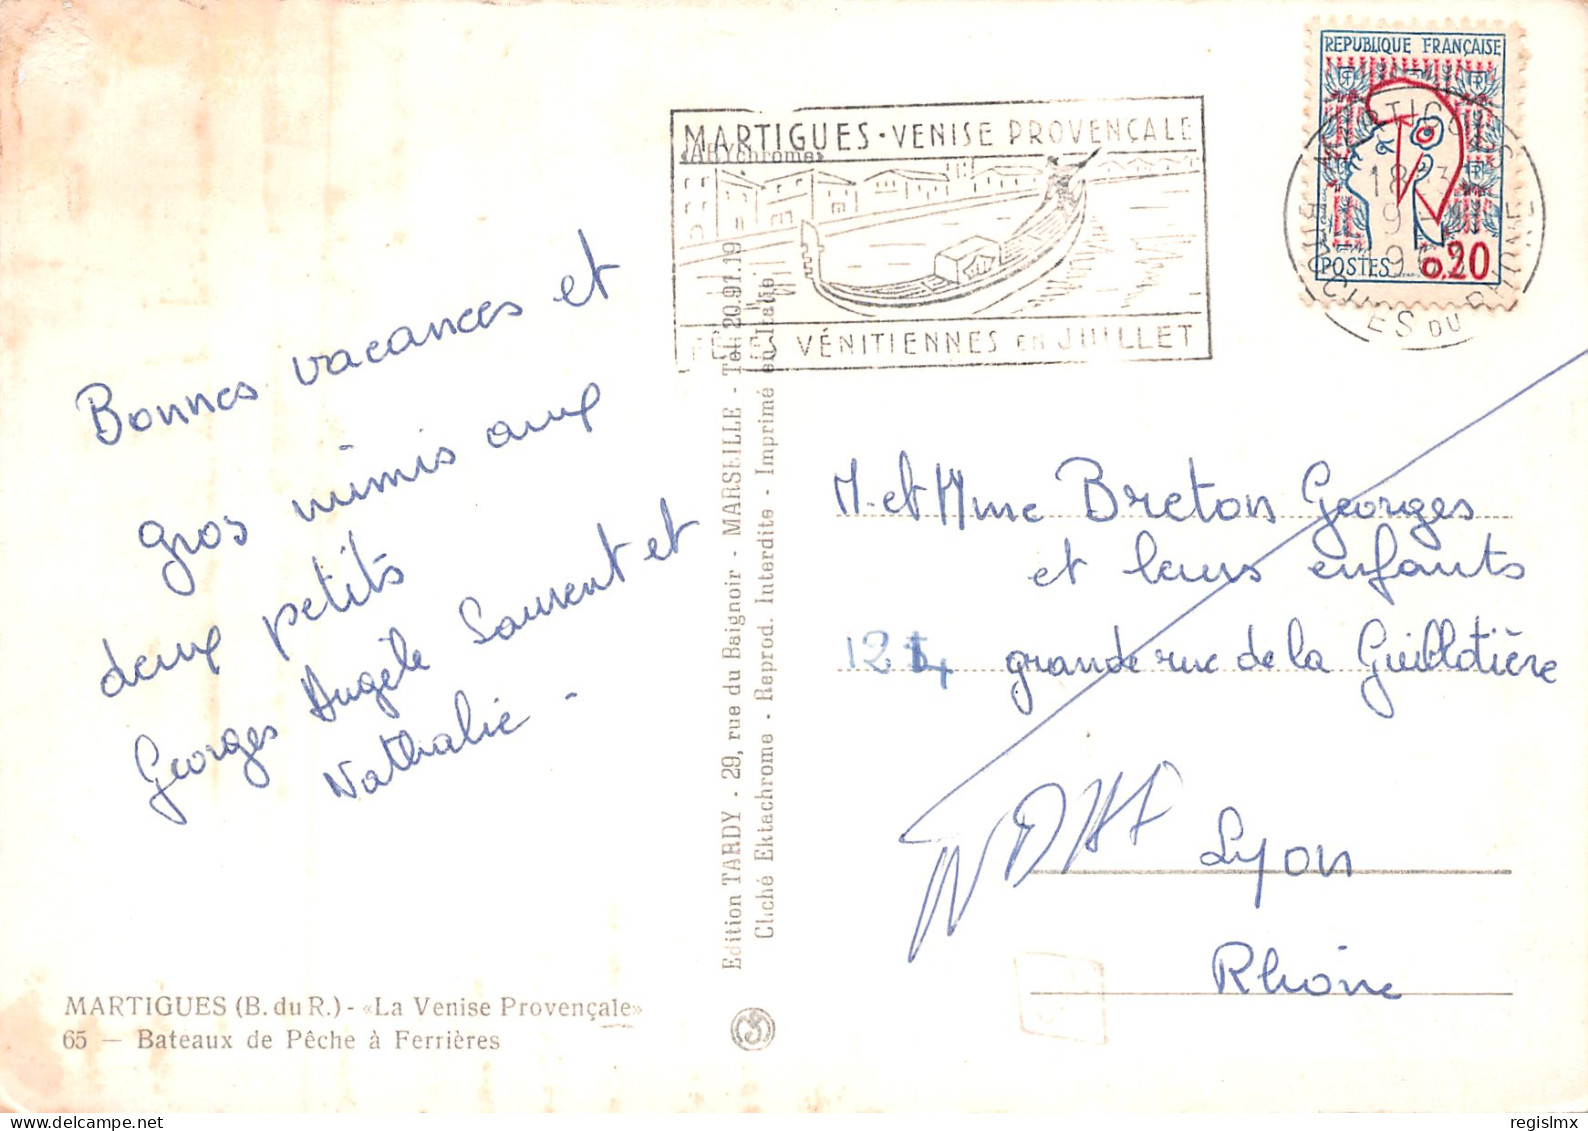 Bonnes vacances et
gros mimis aux
deux petits
Georges Angèle Laurent et
Nathalie -
MARTIGUES (B. du R.) - «La Venise Provençale»
65 — Bateaux de Pêche à Ferrières
Edition TARDY - 29, rue du Baignoir - MARSEILLE - Tél. 20.91.19
Cliché Ektachrome - Reprod. Interdite - Imprimé en Italie
MARTIGUES · VENISE PROVENÇALE
«ARYchrome»
FÊTES VÉNITIENNES en JUILLET
REPUBLIQUE FRANÇAISE
POSTES 0,20
MARTIGUES
18
9
BOUCHES DU RHONE
M. et Mme Breton Georges
et leurs enfants
124 grande rue de la Guillotière
Lyon
Rhône
regislmx